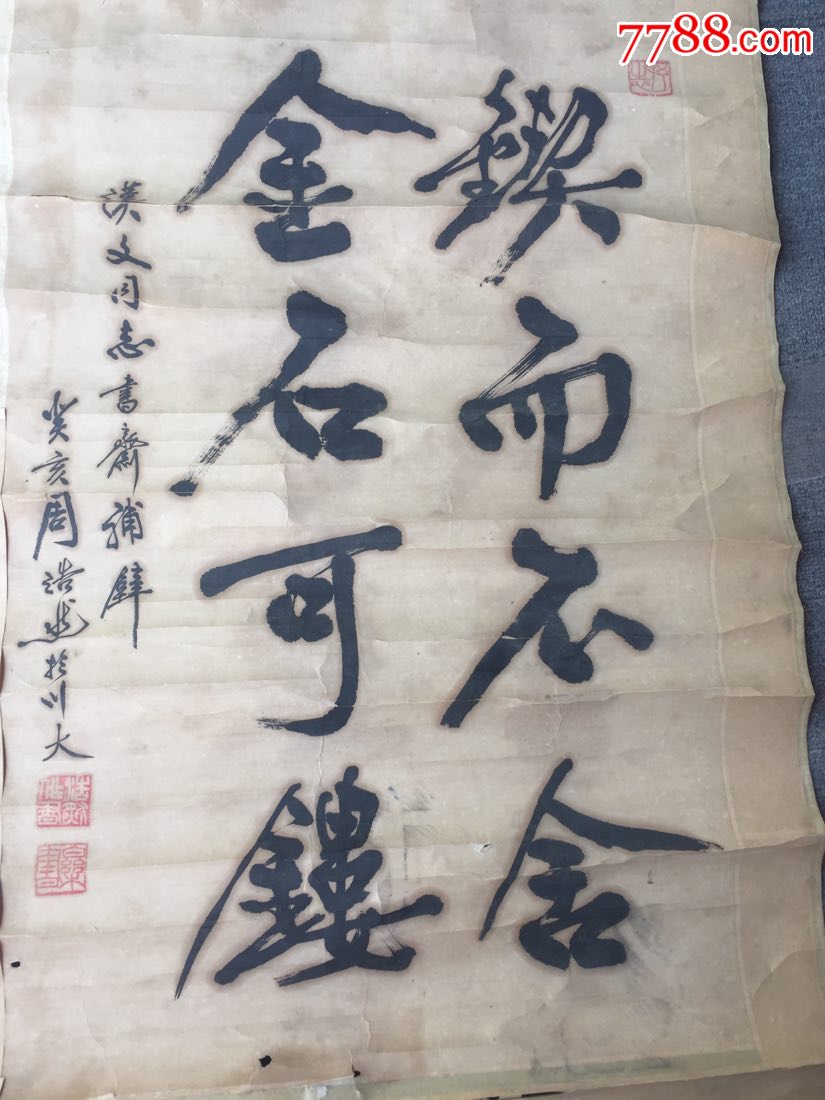 7788.com
锲而不舍
金石可鏤
漢文同志書齋補壁
癸亥周浩然於川大
浩然作書